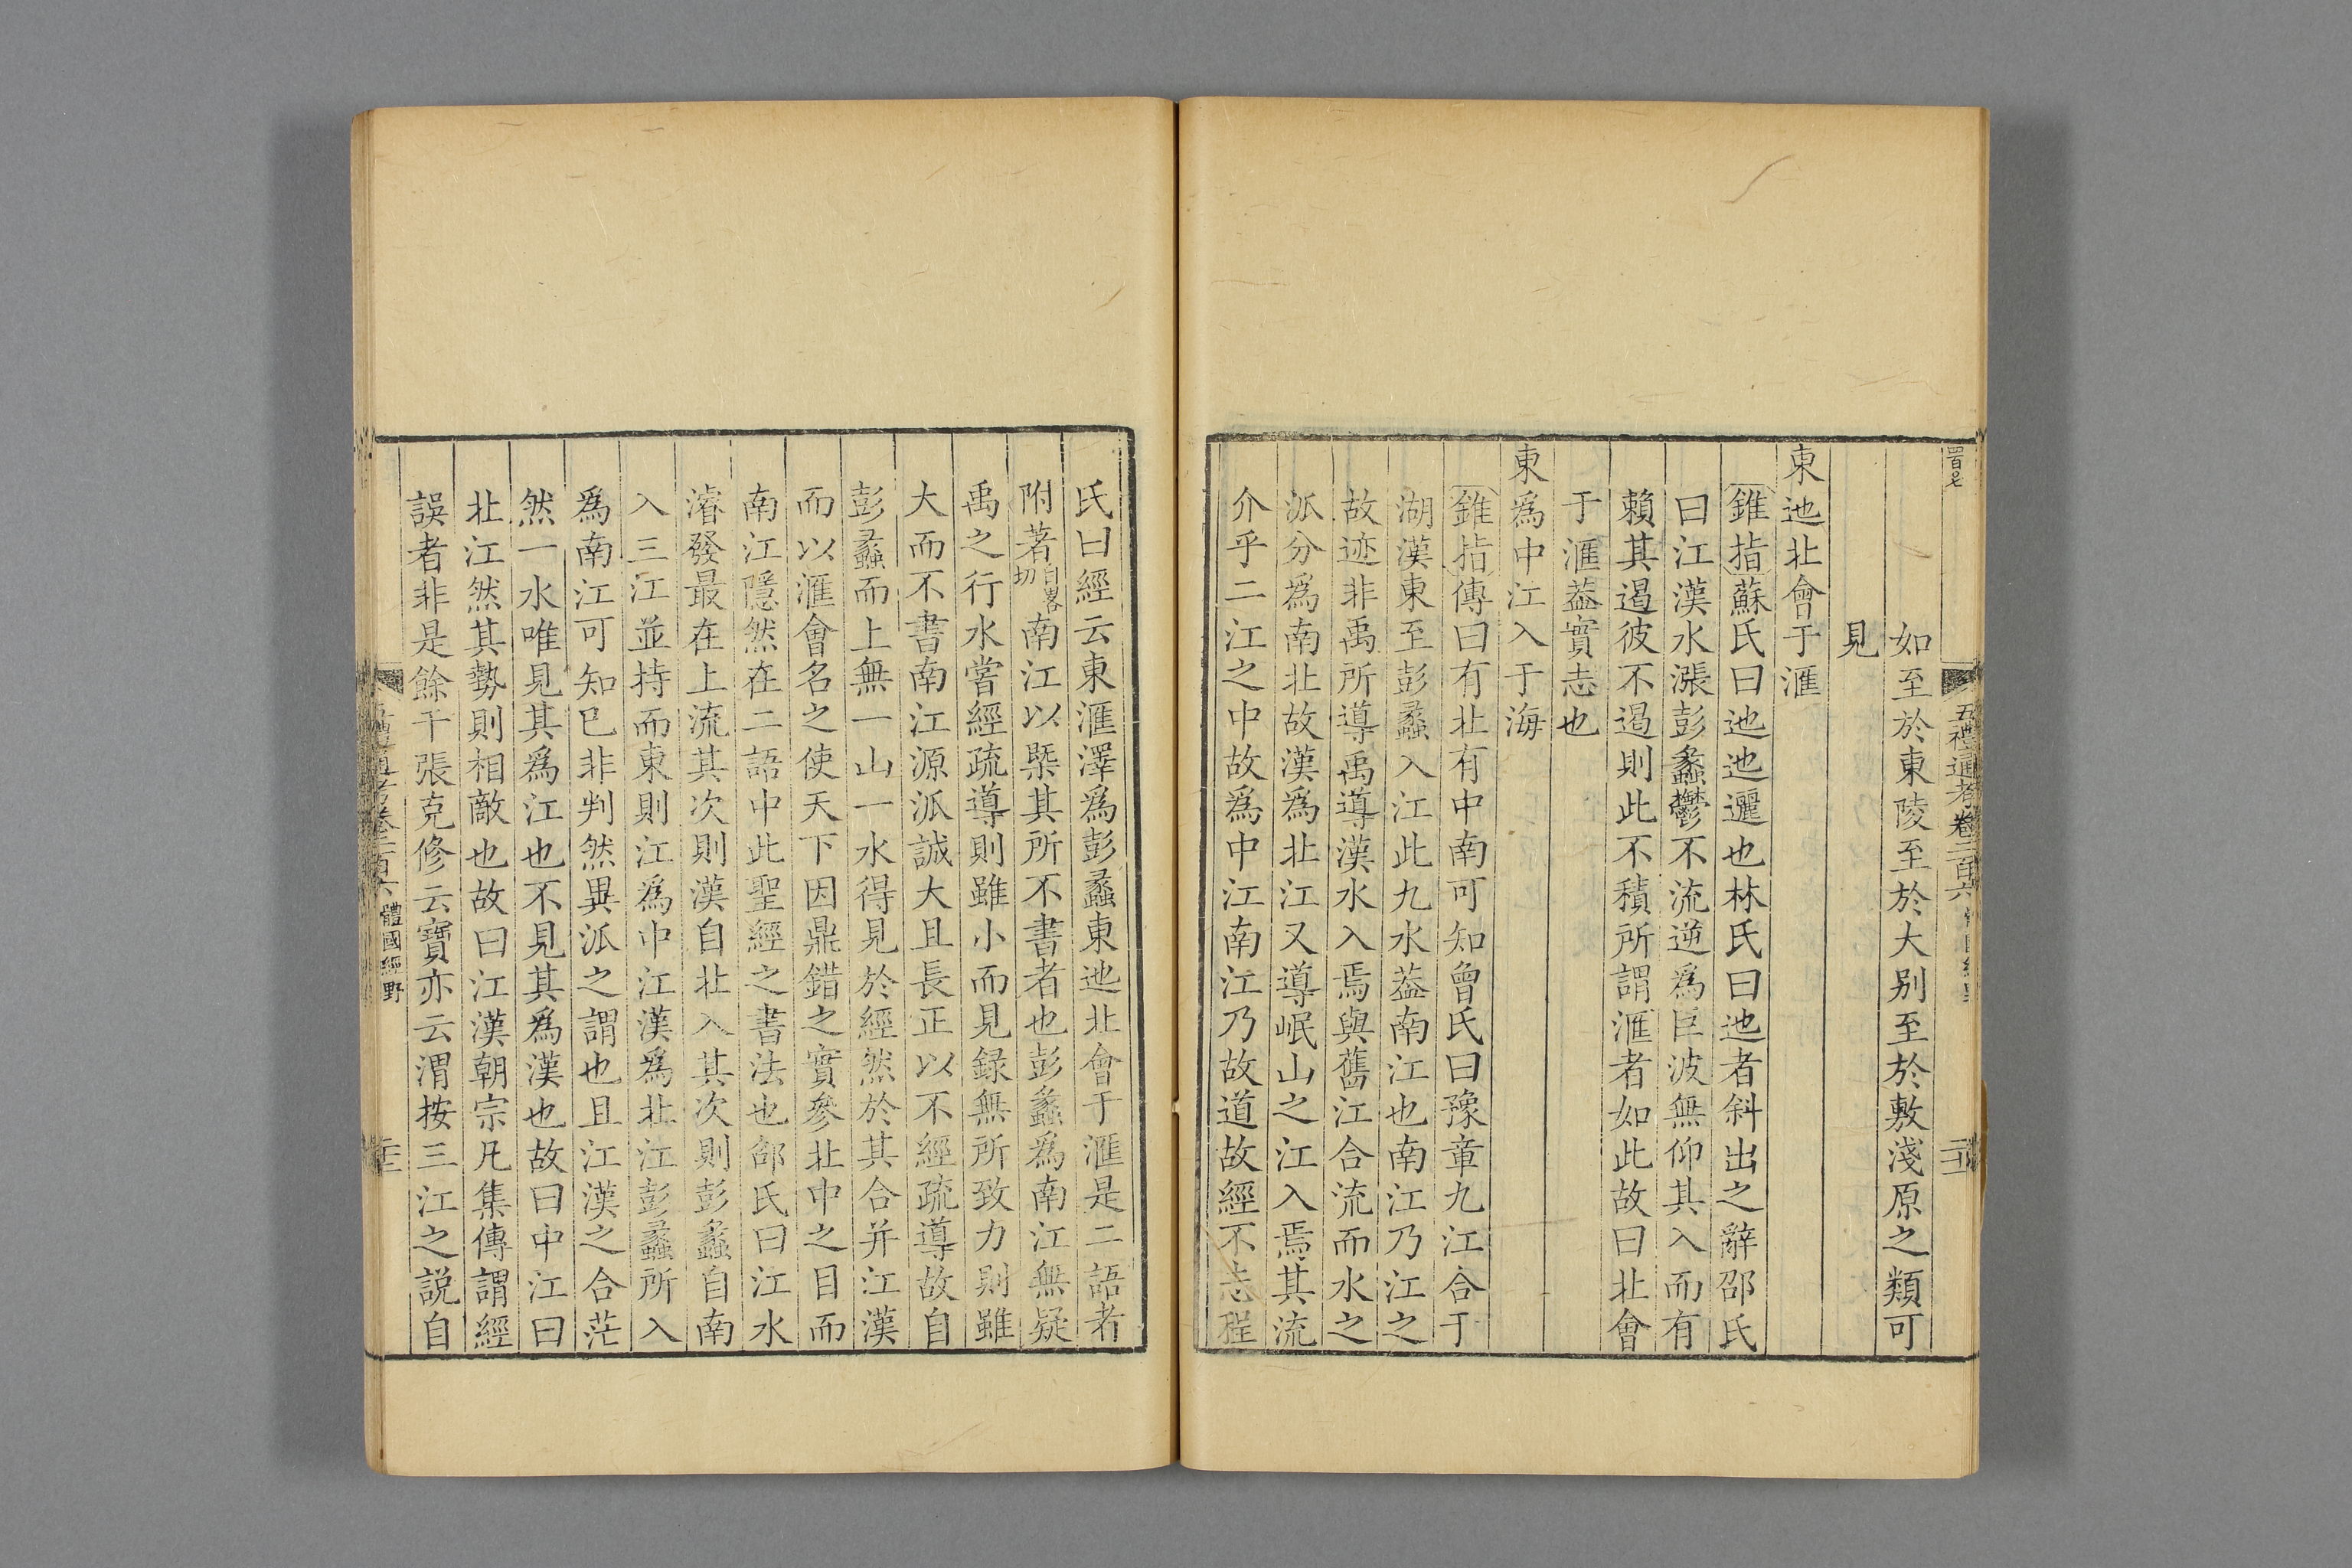 五禮通考卷二百六
如至於東陵至於大别至於敷淺原之類可
見
東迆北會于滙
錐指蘇氏曰迆迆邐也林氏曰迆者斜出之辭邵氏
曰江漢水漲彭蠡鬱不流逆爲巨波無仰其入而有
賴其遏彼不遏則此不積所謂滙者如此故曰北會
于滙葢實志也
東爲中江入于海
錐指傳曰有北有中南可知曾氏曰豫章九江合于
湖漢東至彭蠡入江此九水葢南江也南江乃江之
故迹非禹所導禹導漢水入焉與舊江合流而水之
派分爲南北故漢爲北江又導岷山之江入焉其流
介乎二江之中故爲中江南江乃故道故經不志程
氏曰經云東滙澤爲彭蠡東迆北會于滙是二語者
附著白畧切南江以槩其所不書者也彭蠡爲南江無疑
禹之行水嘗經疏導則雖小而見録無所致力則雖
大而不書南江源派誠大且長正以不經疏導故自
彭蠡而上無一山一水得見於經然於其合并江漢
而以滙會名之使天下因鼎錯之實參北中之目而
南江隱然在二語中此聖經之書法也邵氏曰江水
濬發最在上流其次則漢自北入其次則彭蠡自南
入三江並持而東則江爲中江漢爲北江彭蠡所入
爲南江可知已非判然異派之謂也且江漢之合茫
然一水唯見其爲江也不見其爲漢也故曰中江曰
北江然其勢則相敵也故曰江漢朝宗凡集傳謂經
誤者非是餘干張克修云寶亦云渭按三江之説自
體國經野